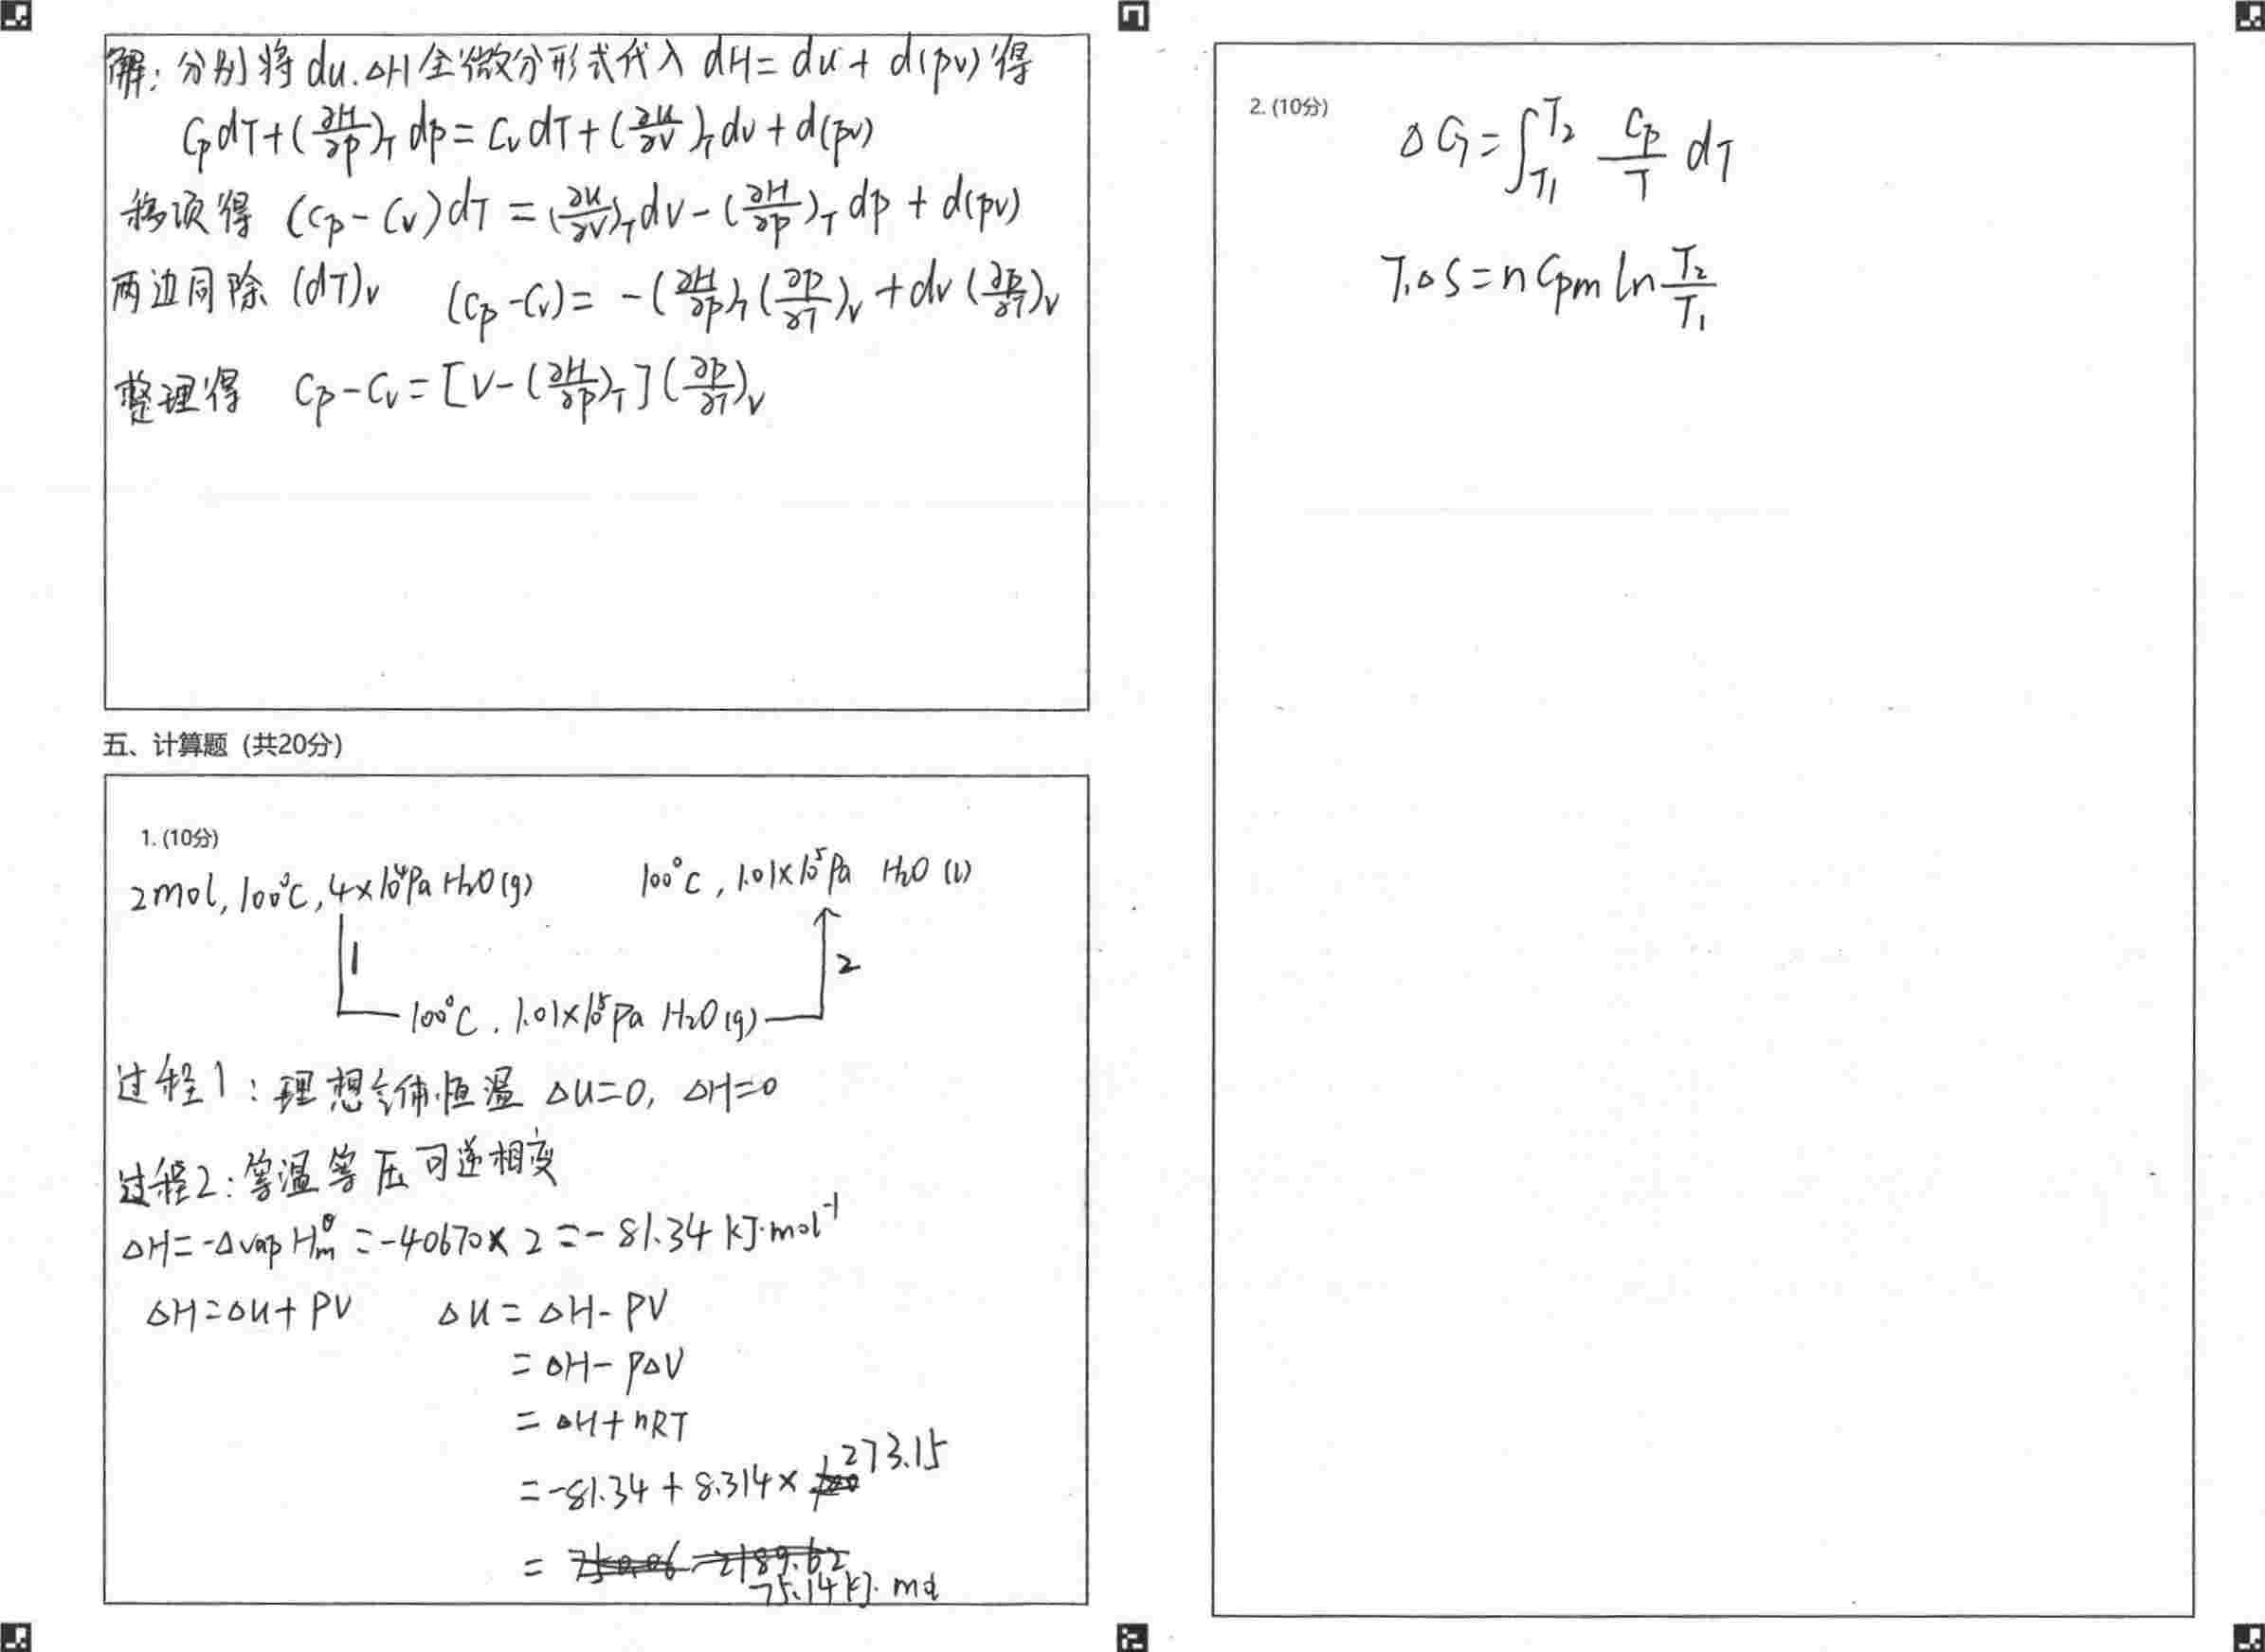 解：分别将 du.ΔH全微分形式代入 dH=du+d(pv)得
CpdT+(∂H/∂p)T dp=CvdT+(∂u/∂v)T dv+d(pv)
移项得 (Cp-Cv)dT=(∂u/∂v)T dv-(∂H/∂p)T dp+d(pv)
两边同除 (dT)v (Cp-Cv)=-(∂H/∂p)T(∂p/∂T)v+dv(∂p/∂T)v
整理得 Cp-Cv=[V-(∂H/∂p)T](∂p/∂T)v
五、计算题（共20分）
1. (10分)
2mol,100°C,4×10⁴Pa H₂O(g) 100°C,1.01×10⁵Pa H₂O(l)
1 2
100°C.1.01×10⁵Pa H₂O(g)
过程1：理想气体.恒温 ΔU=0, ΔH=0
过程2：等温等压可逆相变
ΔH=-ΔvapHm^θ=-40670×2=-81.34 kJ·mol⁻¹
ΔH=Δu+PV Δu=ΔH-PV
=ΔH-PΔV
=ΔH+nRT
=-81.34+8.314×273.15
= -75.14kJ·mol
2. (10分)
ΔG=∫T₁^T₂ Cp/T dT
T.ΔS=nCpm ln T₂/T₁